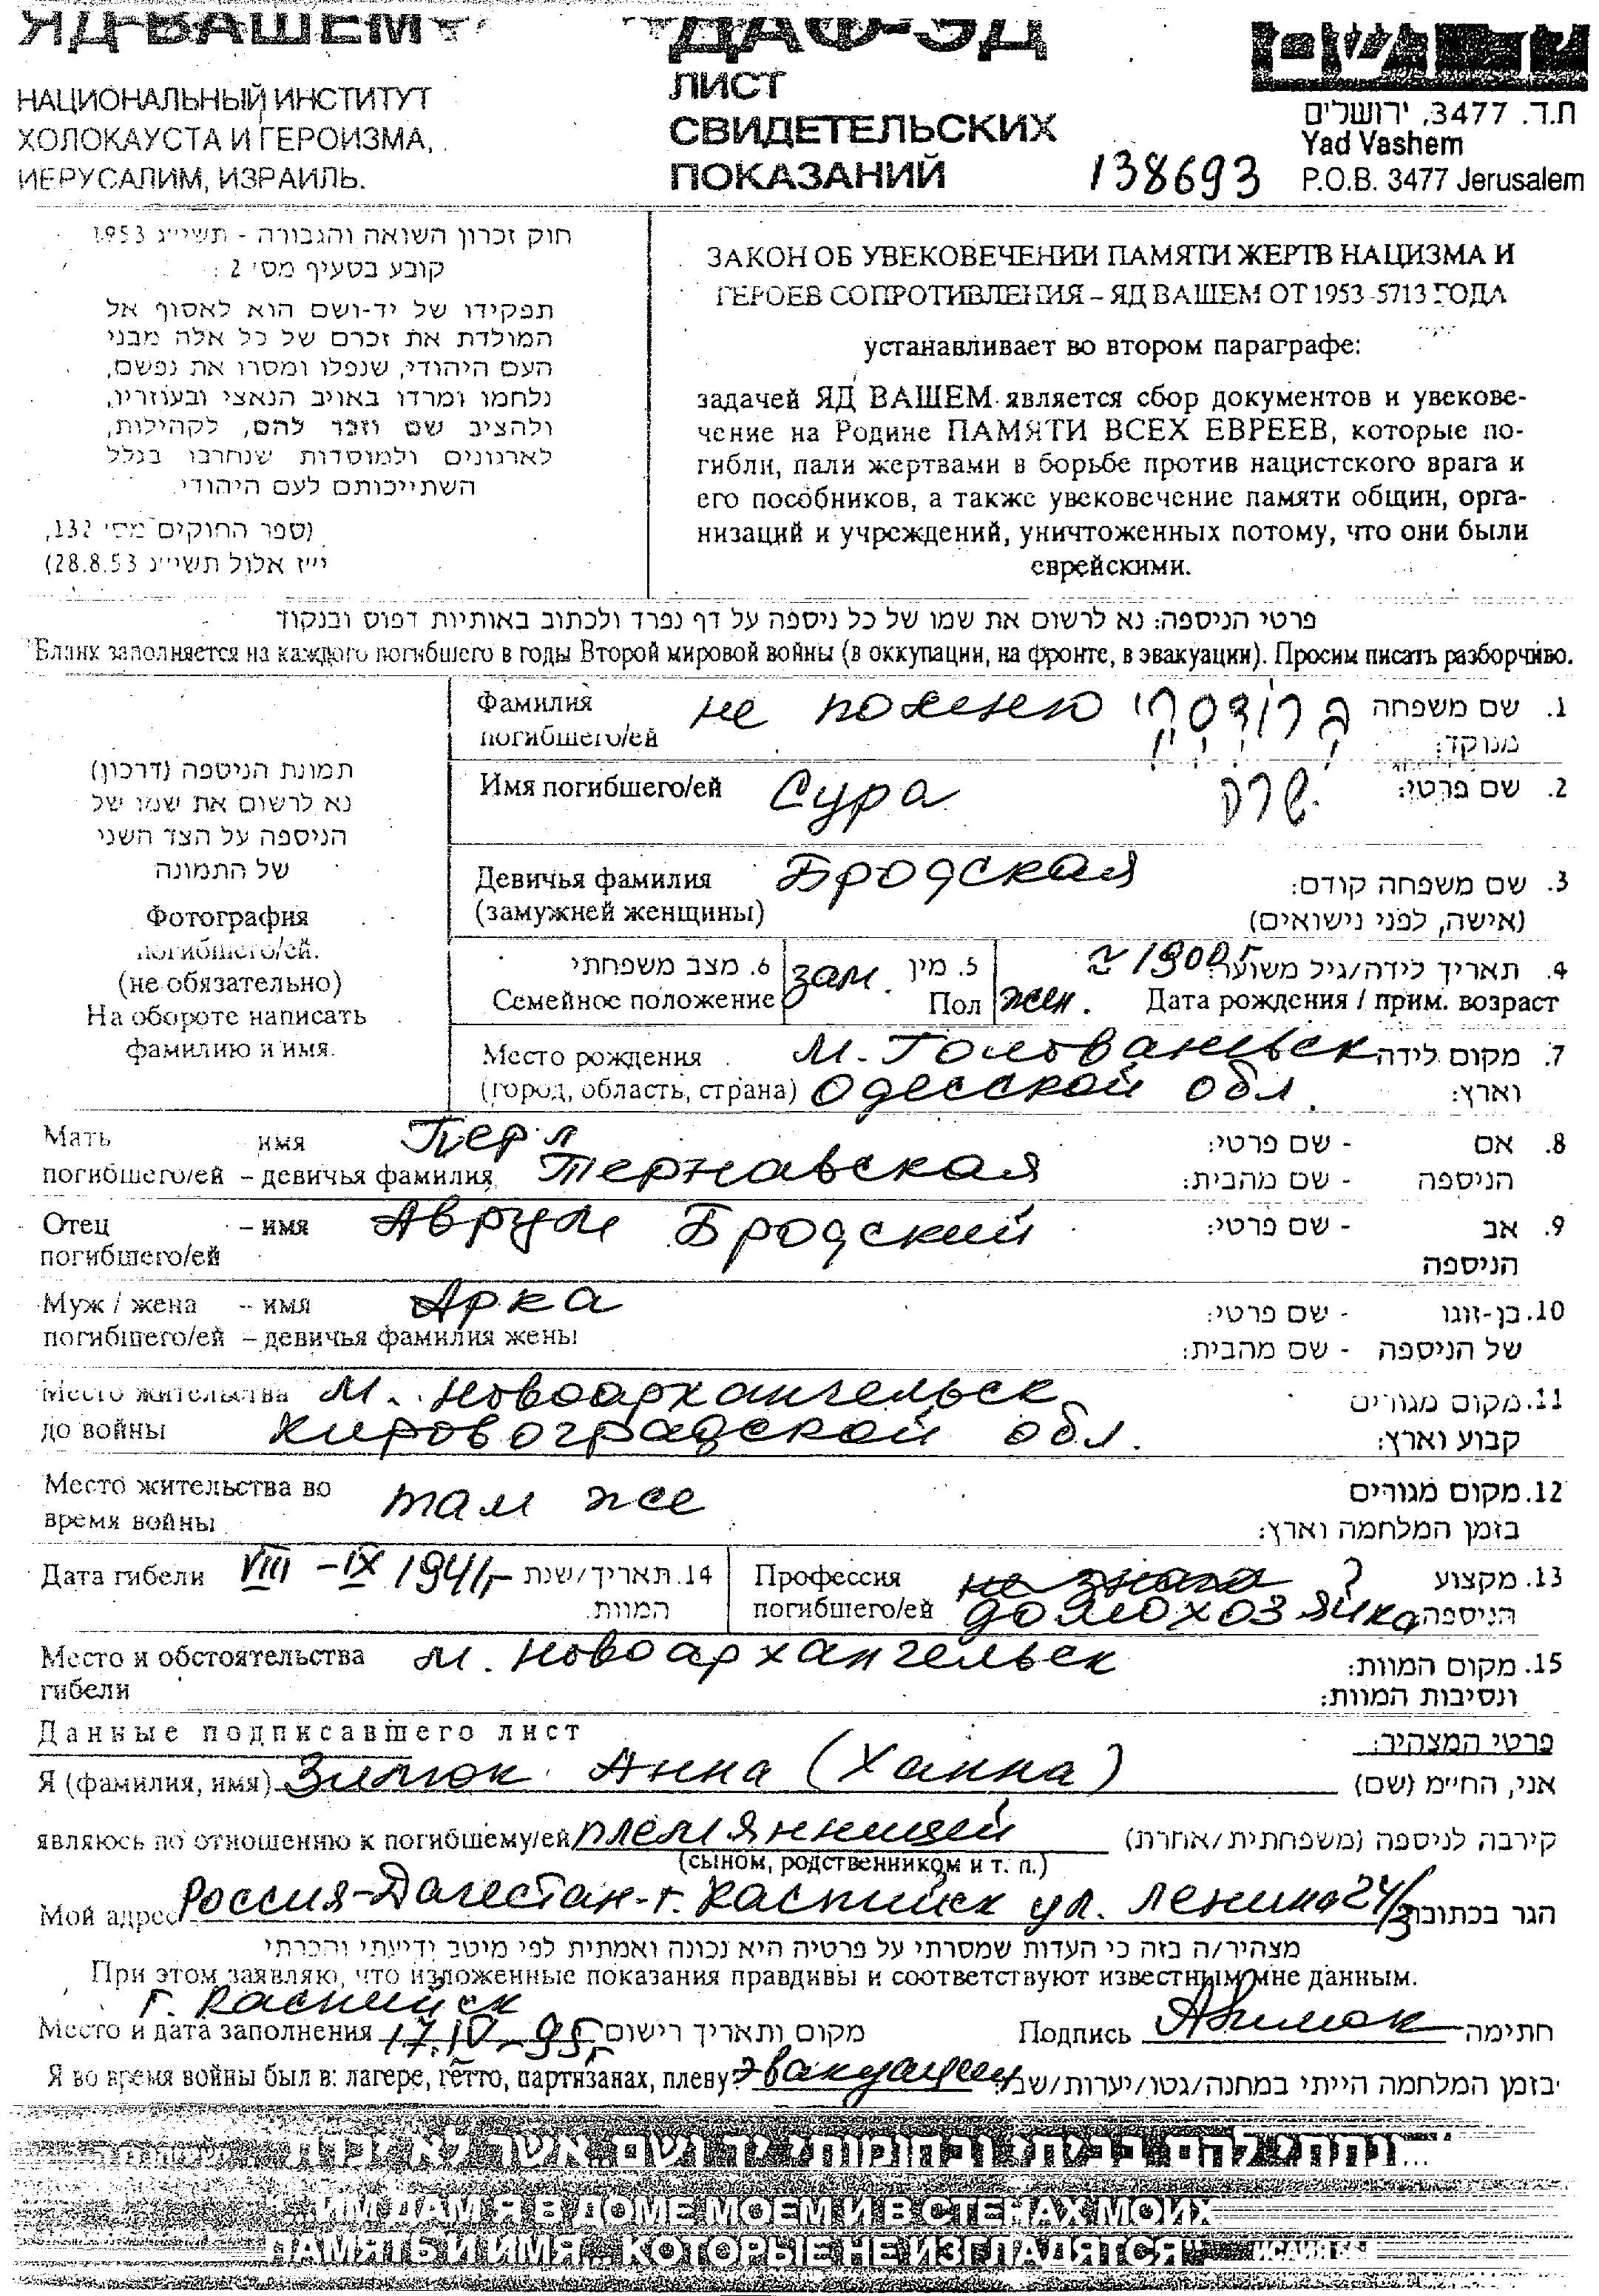 ЯД ВАШЕМ
НАЦИОНАЛЬНЫЙ ИНСТИТУТ
ХОЛОКАУСТА И ГЕРОИЗМА,
ИЕРУСАЛИМ, ИЗРАИЛЬ.
ДАФ-ЭД
ЛИСТ
СВИДЕТЕЛЬСКИХ
ПОКАЗАНИЙ
138693
יד ושם
ת.ד. 3477, ירושלים
Yad Vashem
P.O.B. 3477 Jerusalem
חוק זכרון השואה והגבורה - תשי״ג 1953
קובע בסעיף מס׳ 2 :
תפקידו של יד-ושם הוא לאסוף אל
המולדת את זכרם של כל אלה מבני
העם היהודי, שנפלו ומסרו את נפשם,
נלחמו ומרדו באויב הנאצי ובעוזריו,
ולהציב שם וזכר להם, לקהילות,
לארגונים ולמוסדות שנחרבו בגלל
השתייכותם לעם היהודי.
(ספר החוקים מס׳ 132,
י״ז אלול תשי״ג 28.8.53)
ЗАКОН ОБ УВЕКОВЕЧЕНИИ ПАМЯТИ ЖЕРТВ НАЦИЗМА И
ГЕРОЕВ СОПРОТИВЛЕНИЯ – ЯД ВАШЕМ ОТ 1953-5713 ГОДА
устанавливает во втором параграфе:
задачей ЯД ВАШЕМ является сбор документов и увекове-
чение на Родине ПАМЯТИ ВСЕХ ЕВРЕЕВ, которые по-
гибли, пали жертвами в борьбе против нацистского врага и
его пособников, а также увековечение памяти общин, орга-
низаций и учреждений, уничтоженных потому, что они были
еврейскими.
פרטי הניספה: נא לרשום את שמו של כל ניספה על דף נפרד ולכתוב באותיות דפוס ובנקוד
Бланк заполняется на каждого погибшего в годы Второй мировой войны (в оккупации, на фронте, в эвакуации). Просим писать разборчиво.
תמונת הניספה (דרכון)
נא לרשום את שמו של
הניספה על הצד השני
של התמונה
Фотография
погибшего/ей.
(не обязательно)
На обороте написать
фамилию и имя.
Фамилия не помню ברודסקי 1. שם משפחה
погибшего/ей מנוקד:
Имя погибшего/ей Сура שרה 2. שם פרטי:
Девичья фамилия Бродская 3. שם משפחה קודם:
(замужней женщины) (אישה, לפני נישואים)
6. מצב משפחתי зам. 5. מין ≈1900г. 4. תאריך לידה/גיל משוער:
Семейное положение Пол жен. Дата рождения / прим. возраст
Место рождения м. Голованьвск 7. מקום לידה
(город, область, страна) Одесской обл. וארץ:
Мать имя Перл 8. אם - שם פרטי:
погибшего/ей – девичья фамилия Тернавская הניספה - שם מהבית:
Отец – имя Аврум Бродский 9. אב - שם פרטי:
погибшего/ей הניספה
Муж / жена – имя Арка 10. בן-זוגו - שם פרטי:
погибшего/ей – девичья фамилия жены של הניספה - שם מהבית:
Место жительства м. Новоархангельск 11. מקום מגורים
до войны Кировоградской обл. קבוע וארץ:
Место жительства во там же 12. מקום מגורים
время войны בזמן המלחמה וארץ:
Дата гибели VIII – IX 1941г. 14. תאריך/שנת Профессия не знаю ? 13. מקצוע
המוות. погибшего/ей домохозяйка הניספה
Место и обстоятельства м. Новоархангельск 15. מקום המוות:
гибели ונסיבות המוות:
Данные подписавшего лист פרטי המצהיר:
Я (фамилия, имя) Зимок Анна (Ханна) אני, החי״מ (שם)
являюсь по отношению к погибшему/ей племянницей קירבה לניספה (משפחתית/אחרת)
(сыном, родственником и т. п.)
Мой адрес Россия-Дагестан-г. Каспийск ул. Ленина 24/3 הגר בכתובת
מצהיר/ה בזה כי העדות שמסרתי על פרטיה היא נכונה ואמתית לפי מיטב ידיעתי והכרתי
При этом заявляю, что изложенные показания правдивы и соответствуют известным мне данным.
г. Каспийск
Место и дата заполнения 17.IV-95г. מקום ותאריך רישום Подпись Азимок חתימה
Я во время войны был в: лагере, гетто, партизанах, плену? эвакуации בזמן המלחמה הייתי במחנה/גטו/יערות/שבי
ונתתי להם בביתי ובחומותי יד ושם...אשר לא יכרת
...ИМ ДАМ Я В ДОМЕ МОЕМ И В СТЕНАХ МОИХ
ПАМЯТЬ И ИМЯ... КОТОРЫЕ НЕ ИЗГЛАДЯТСЯ"